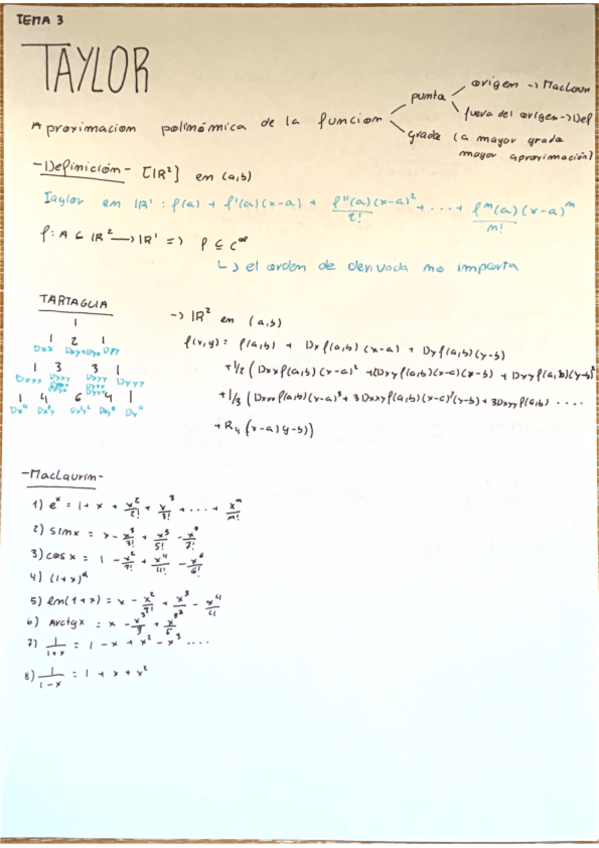 TEMA 3
TAYLOR
Aproximacion polinómica de la funcion
punto
origen → Maclaurin
fuera del origen → Def
grado (a mayor grado
mayor aproximación)
-Definición- [IR²] en (a,b)
Taylor en IR¹ : f(a) + f'(a)(x-a) + f''(a)(x-a)²/2! + ... + fᵐ(a)(x-a)ᵐ/m!
f: A ⊆ IR² → IR¹ => f ⊆ C^∞
↳ el orden de derivada no importa
TARTAGLIA
1
1 2 1
Dxx Dxy+Dyx Dyy
1 3 3 1
Dxxx Dyyy
1 4 6 4 1
Dx⁴ Dx³y Dx²y² Dy⁴
→ IR² en (a,b)
f(x,y) = f(a,b) + Dxf(a,b)(x-a) + Dyf(a,b)(y-b)
+1/2 (Dxxf(a,b)(x-a)² + 2Dxyf(a,b)(x-a)(x-b) + Dxyf(a,b)(y-b)²
+1/3 (Dxxxf(a,b)(x-a)³ + 3Dxxyf(a,b)(x-a)²(y-b) + 3Dxyyf(a,b) ....
+ R₄ (x-a)(y-b))
-Maclaurin-
1) eˣ = 1 + x + x²/2! + x³/3! + ... + xᵐ/m!
2) sinx = x - x³/3! + x⁵/5! - x⁷/7!
3) cosx = 1 - x²/2! + x⁴/4! - x⁶/6!
4) (1+x)^α
5) ln(1+x) = x - x²/2! + x³/3! - x⁴/4!
6) Arctgx = x - x³/3 + x⁵/5
7) 1/(1+x) = 1 - x + x² - x³ ....
8) 1/(1-x) = 1 + x + x²